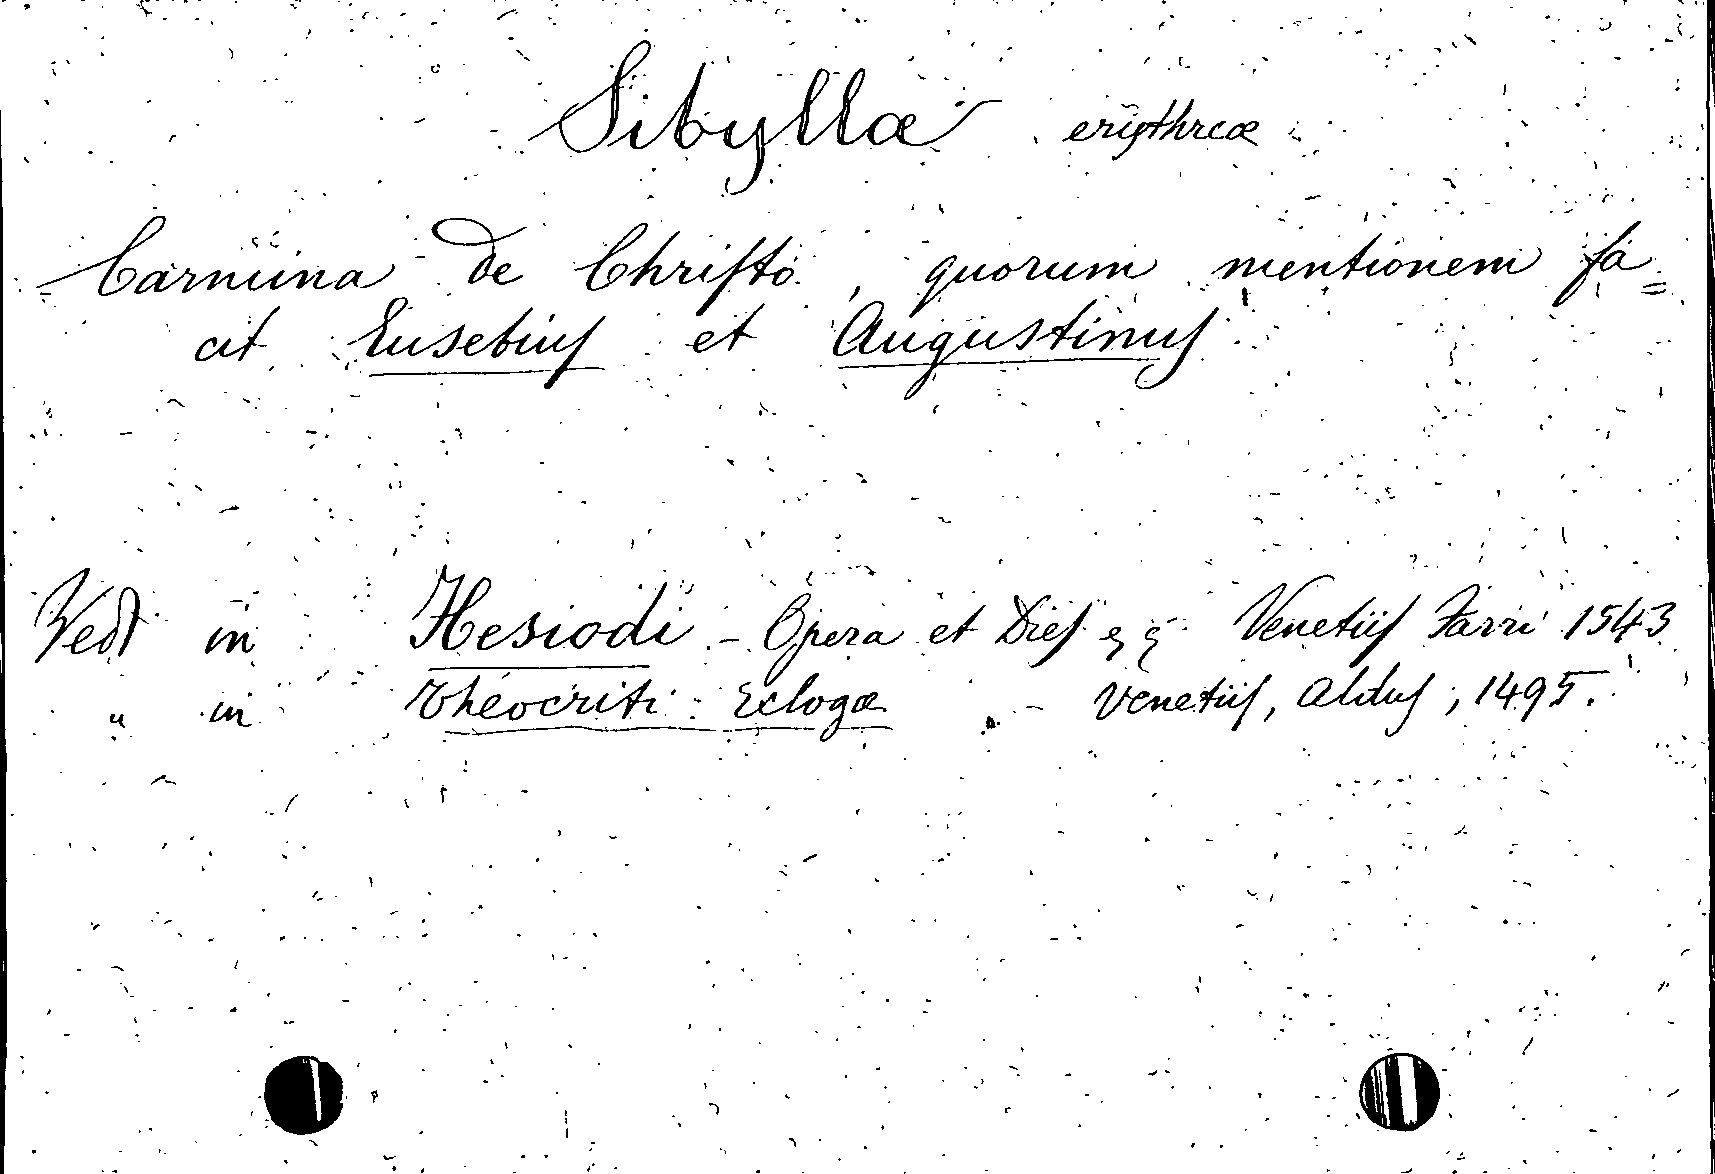 Sibyllæ erythreæ
Carmina de Chriſto, quorum mentionem fa=
cit Eusebius et Augustinus
Vedi in Hesiodi - Opera et Dies Venetiis Farri 1543
" in Theocriti: Eclogæ - Venetiis, Aldus, 1495.